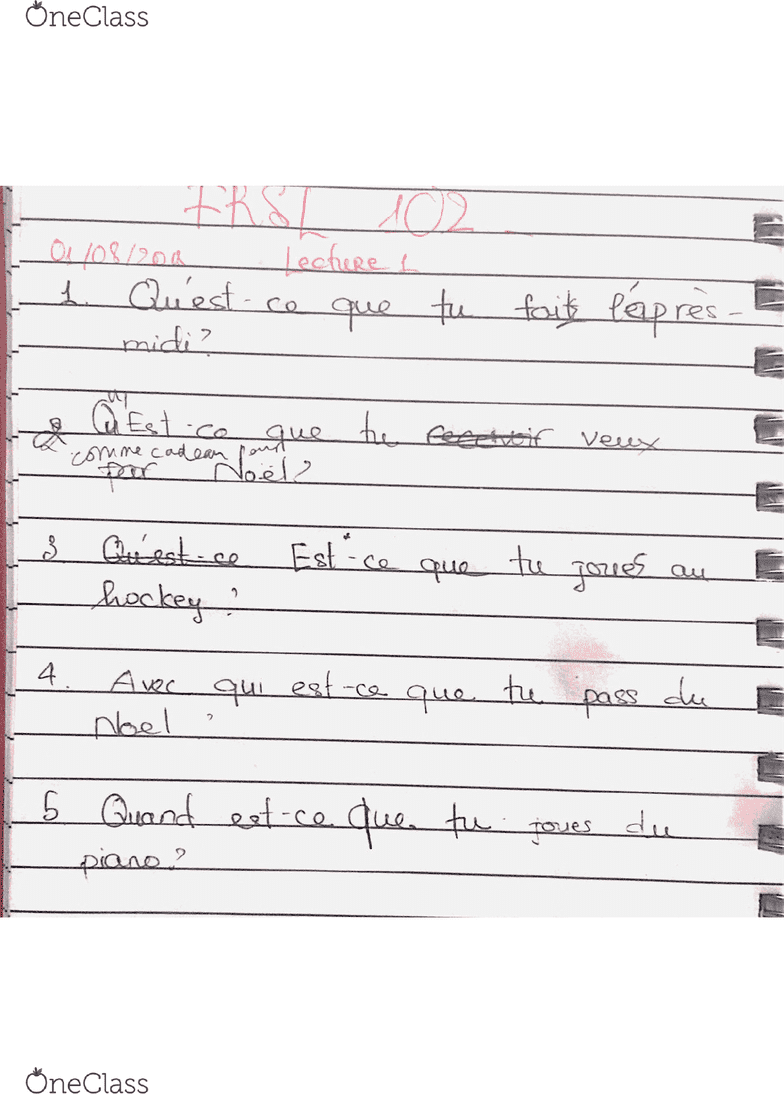 OneClass
FRSL 102
Lecture 1
1. Qu'est-ce que tu fais l'après-
midi?
2 Qu'Est-ce que tu recevoir veux
comme cadeau pour
pour Noël?
3 Qu'est-ce Est-ce que tu joues au
hockey?
4. Avec qui est-ce que tu pass du
Noel?
5 Quand est-ce que tu joues du
piano?
OneClass